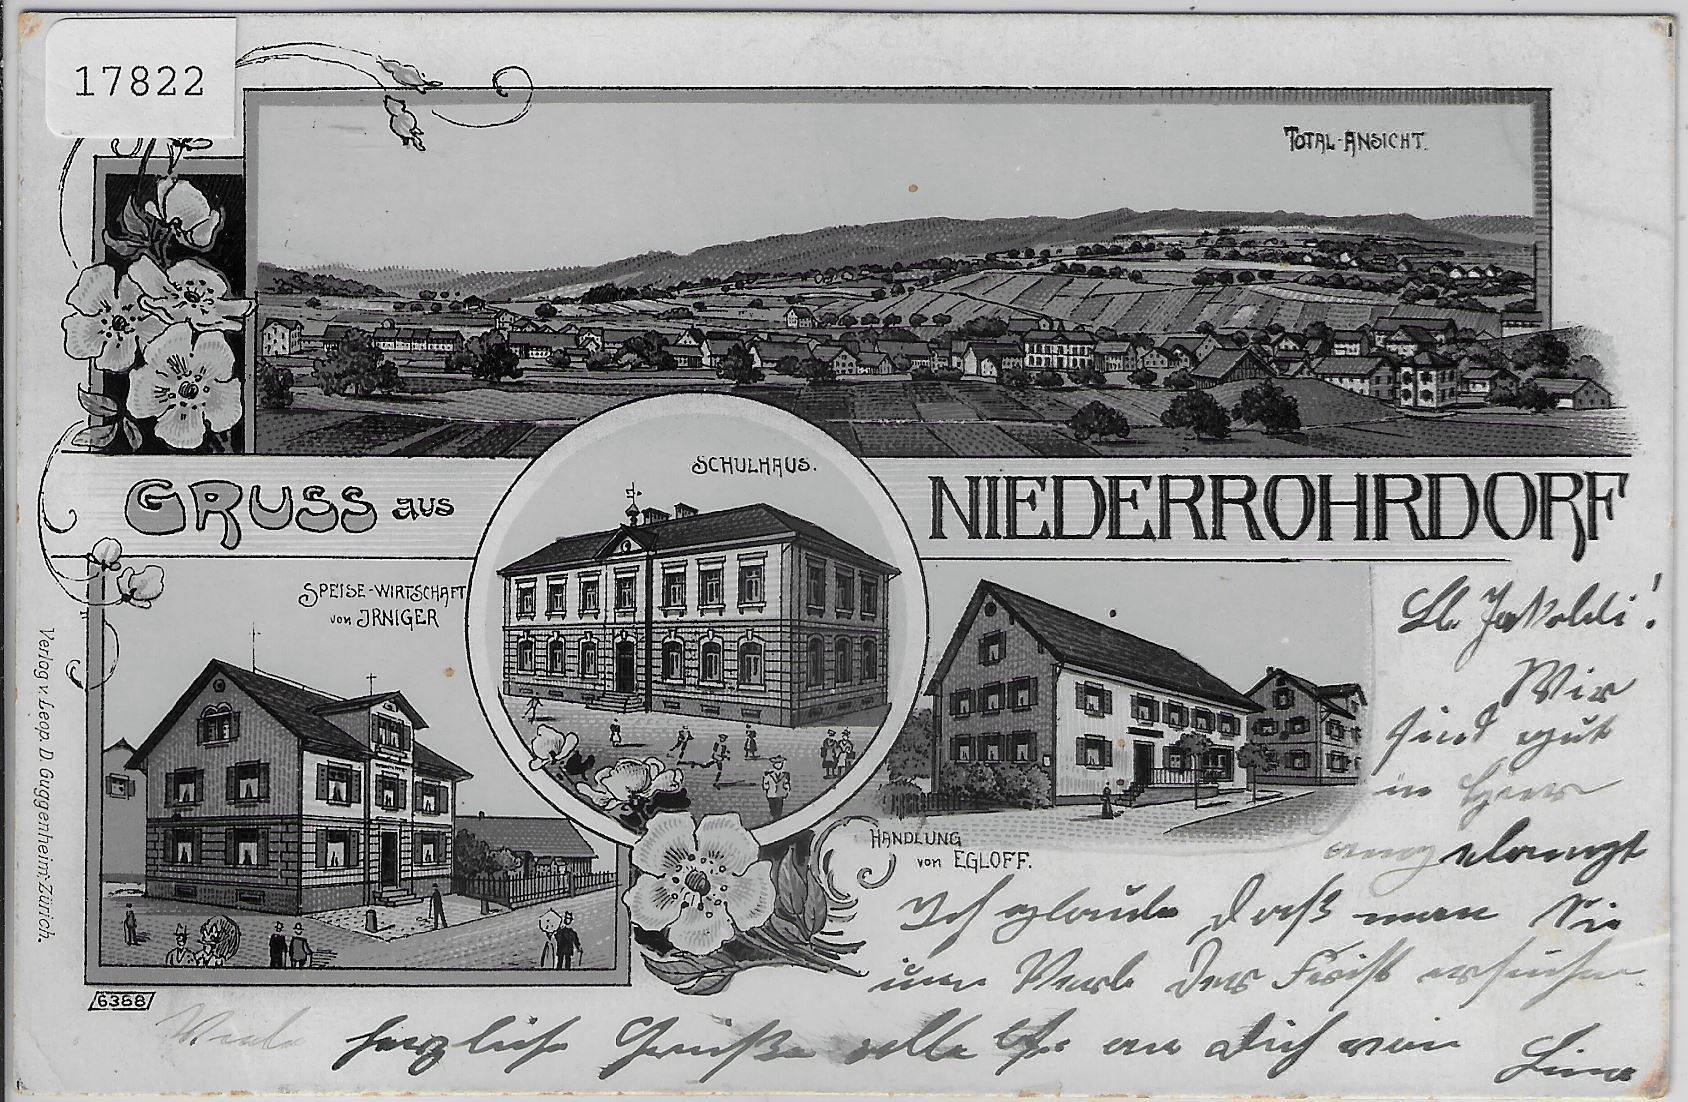 17822
TOTAL-ANSICHT.
GRUSS aus
NIEDERROHRDORF
SCHULHAUS.
SPEISE-WIRTSCHAFT
von IRNIGER
HANDLUNG
von EGLOFF.
Verlag v. Leop. D. Guggenheim, Zürich.
6368
Wir
sind gut
in
angelangt
Ich glaube daß man Sie
um der Frist
Viele herzliche Grüße alle an dich von
Lina